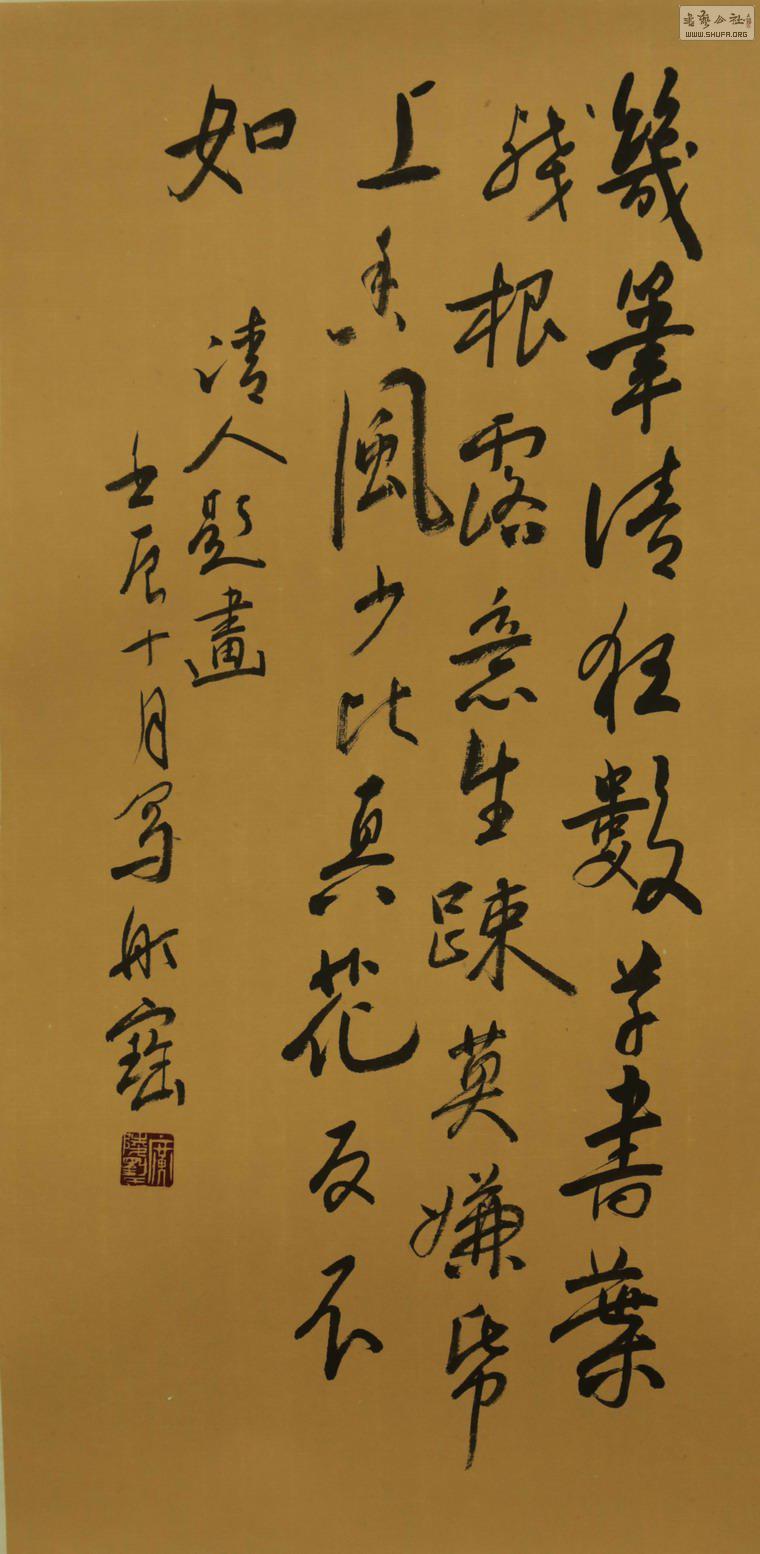 書藝公社
WWW.SHUFA.ORG
幾筆清狂數草書葉
殘根露意生踈莫嫌帋
上香風少比真花反不
如
清人題畫
壬辰十月写